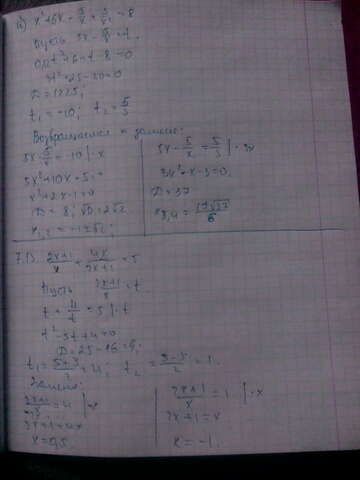 Пусть 5x - 5/x = t.
D = 1225;
t₁ = -10; t₂ = 5/3
Возвращаемся к замене:
5x - 5/x = -10 | · x
5x² + 10x - 5 = 0
x² + 2x - 1 = 0
D = 8; √D = 2√2
x₁,₂ = -1 ± √2;
5x - 5/x = 5/3 | · 3x
3x² - x - 3 = 0;
D = 37
x₃,₄ = (1 ± √37)/6
7.13. (2x+1)/x + 4x/(2x+1) = 5
Пусть (2x+1)/x = t
t + 4/t = 5 | · t
t² - 5t + 4 = 0
D = 25 - 16 = 9;
t₁ = (5+3)/2 = 4; t₂ = (5-3)/2 = 1.
Замена:
(2x+1)/x = 4 | · x
2x + 1 = 4x
x = 0,5
(2x+1)/x = 1 | · x
2x + 1 = x
x = -1.